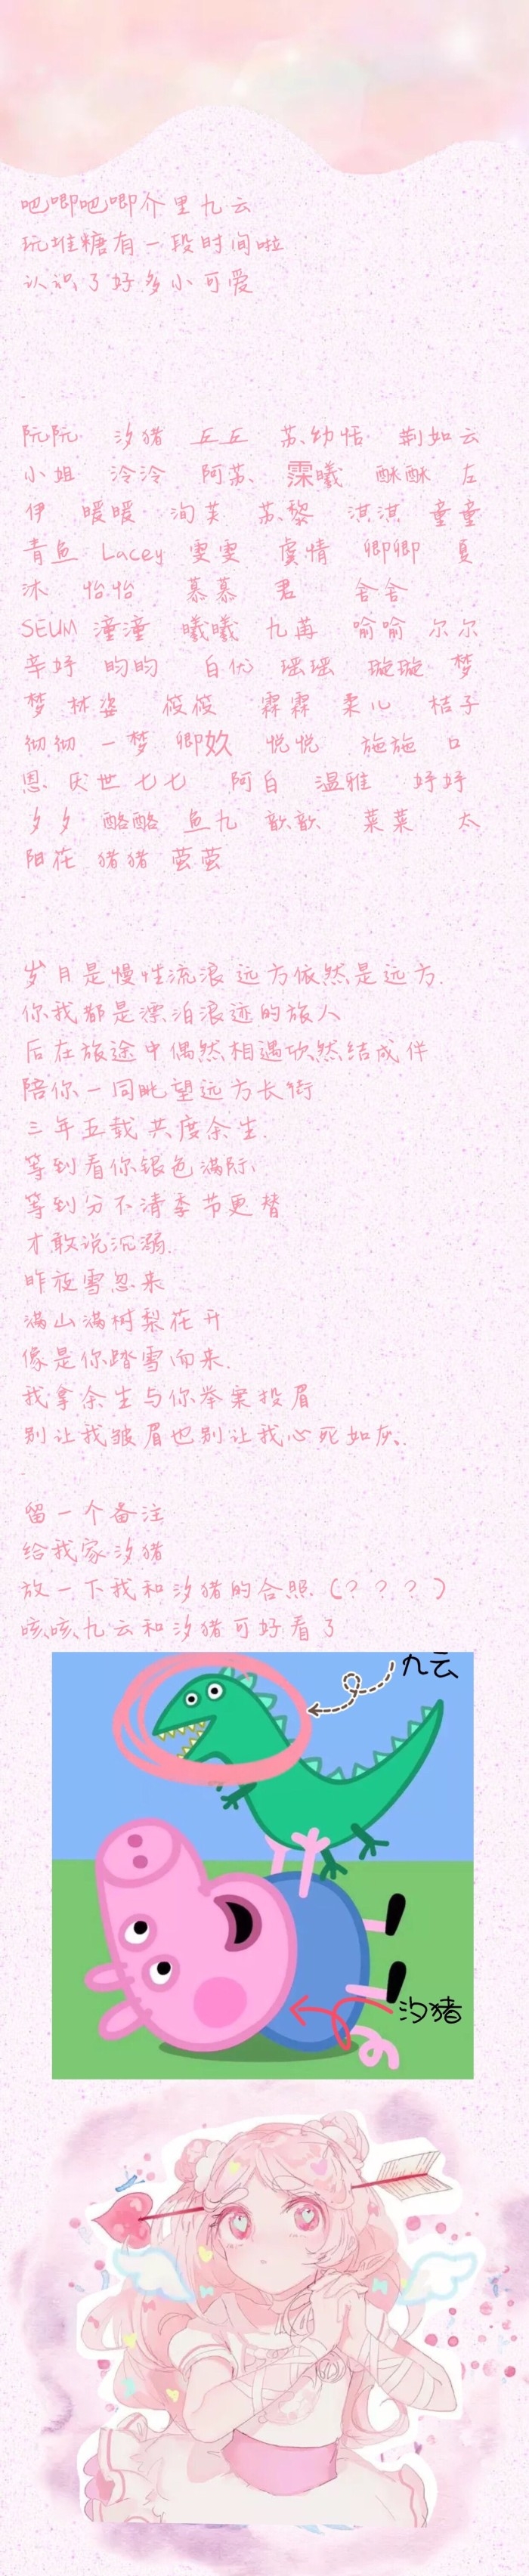 吧唧吧唧介里九云
玩堆糖有一段时间啦
认识了好多小可爱
阮阮 汐猪 丘丘 苏幼恬 荆如云
小姐 泠泠 阿苏 霂曦 酥酥 左
伊 暖暖 洵芙 苏黎 淇淇 童童
青鱼 Lacey 雯雯 虞情 卿卿 夏
沐 怡怡 慕慕 君 舍舍
SEUM 潼潼 曦曦 九苒 喻喻 尔尔
辛妤 昀昀 白优 瑶瑶 璇璇 梦
梦 林姿 筱筱 霖霖 柔儿 桔子
彻彻 一梦 卿欢 悦悦 施施 口
恩 厌世 七七 阿白 温雅 妤妤
多多 酪酪 鱼九 歆歆 菜菜 太
阳花 猪猪 萤萤
岁月是慢性流浪 远方依然是远方.
你我都是漂泊浪迹的旅人
后在旅途中偶然相遇欣然结成伴
陪你一同眺望远方长街
三年五载 共度余生.
等到看你银色满际
等到分不清季节更替
才敢说沉溺.
昨夜雪忽来
满山满树梨花开
像是你踏雪而来.
我拿余生与你举案投眉
别让我皱眉也别让我心死如灰.
留一个备注
给我家汐猪
放一下我和汐猪的合照.(???)
咳咳九云和汐猪可好看了
九云
汐猪